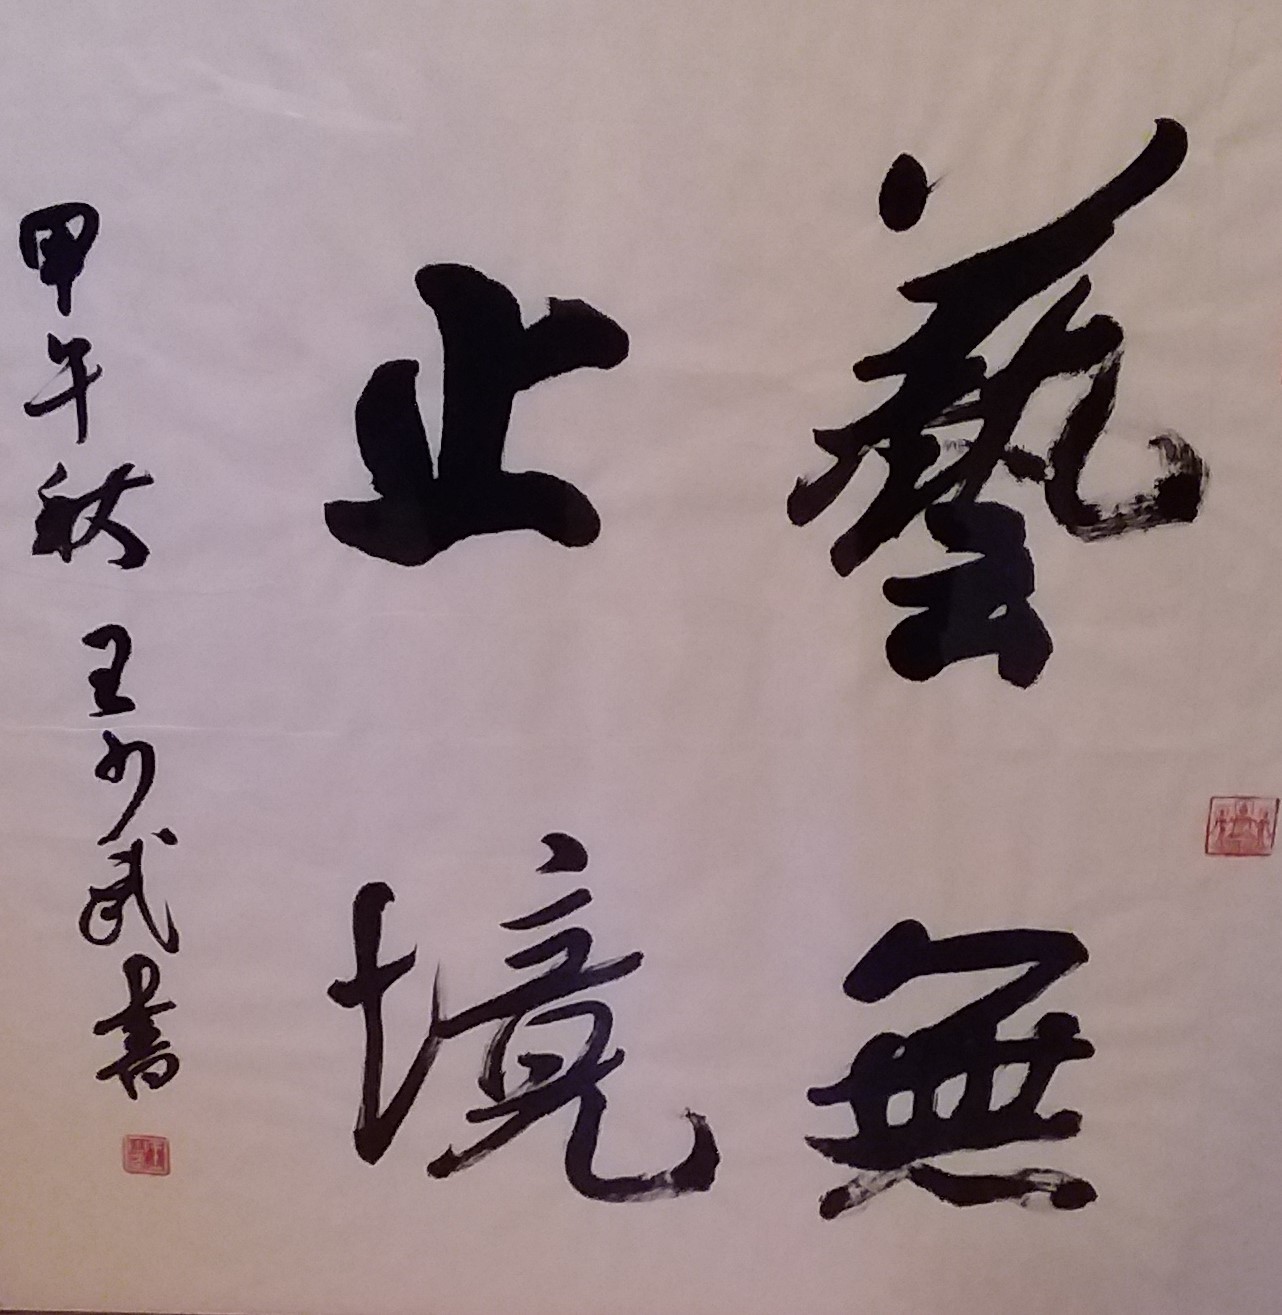 藝無
止境
甲午秋 王少武書